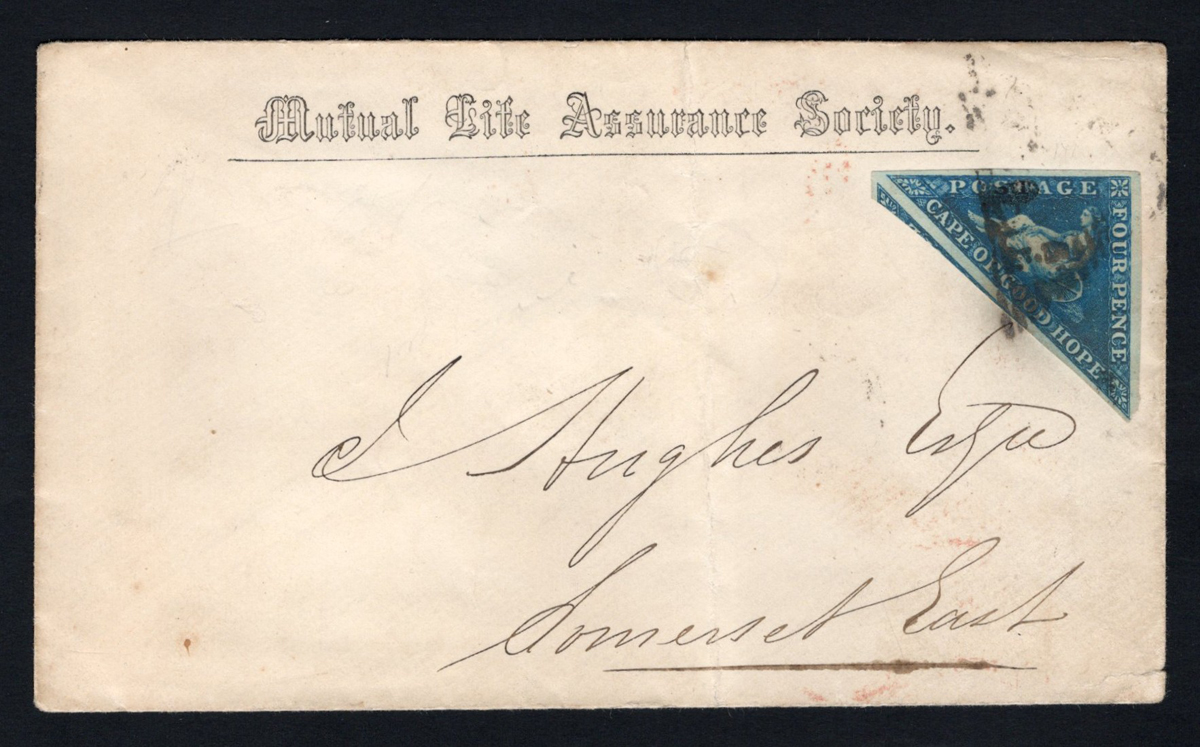 Mutual Life Assurance Society.
POSTAGE
FOUR PENCE
CAPE OF GOOD HOPE
J Hughes Esqre
Somerset East